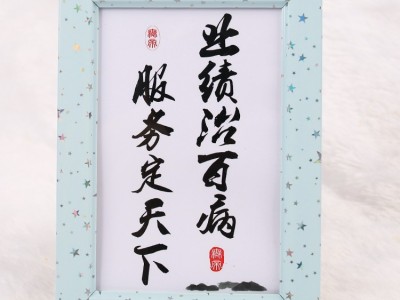 业绩治百病
服务定天下